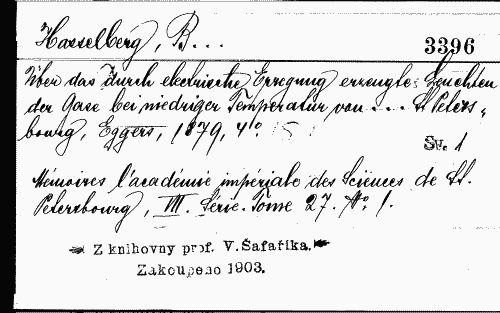 Hasselberg, B...
3396
Über das durch elektrische Erregung erzeugte Leuchten
der Gase bei niedriger Temperatur von ... St Peters-
bourg, Eggers, 1879, 4º.
Sv. 1
Mémoires l'académie impériale des Sciences de St.
Petersbourg, VII. Série. Tome 27. No. 1.
Z knihovny prof. V. Šafaříka.
Zakoupeno 1903.